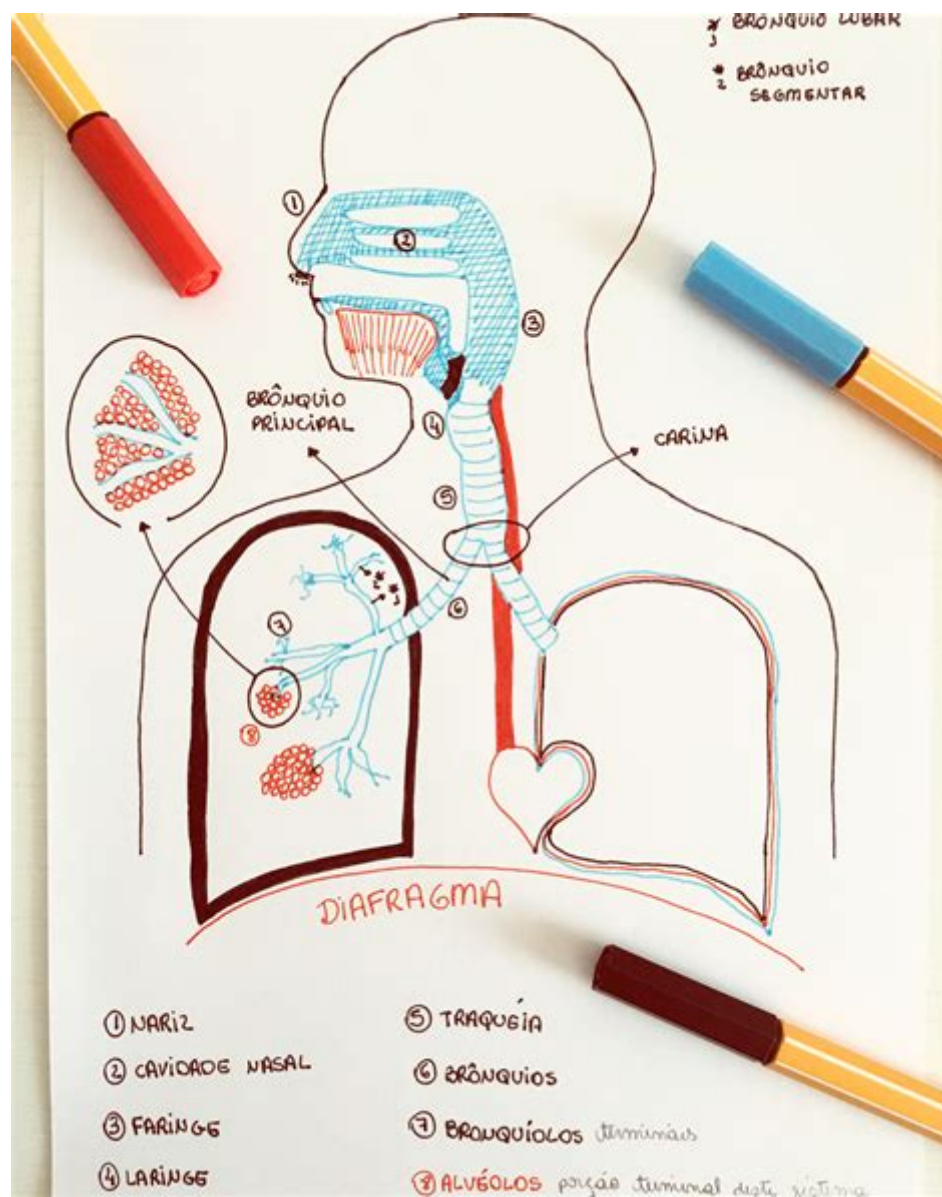 * BRÔNQUIO LOBAR
1
* BRÔNQUIO
2 SEGMENTAR
1
2
3
BRÔNQUIO
PRINCIPAL
4
CARINA
5
6
7
8
DIAFRAGMA
1 NARIZ
2 CAVIDADE NASAL
3 FARINGE
4 LARINGE
5 TRAQUEÍA
6 BRÔNQUIOS
7 BRONQUÍOLOS terminais
8 ALVÉOLOS porção terminal deste sistema